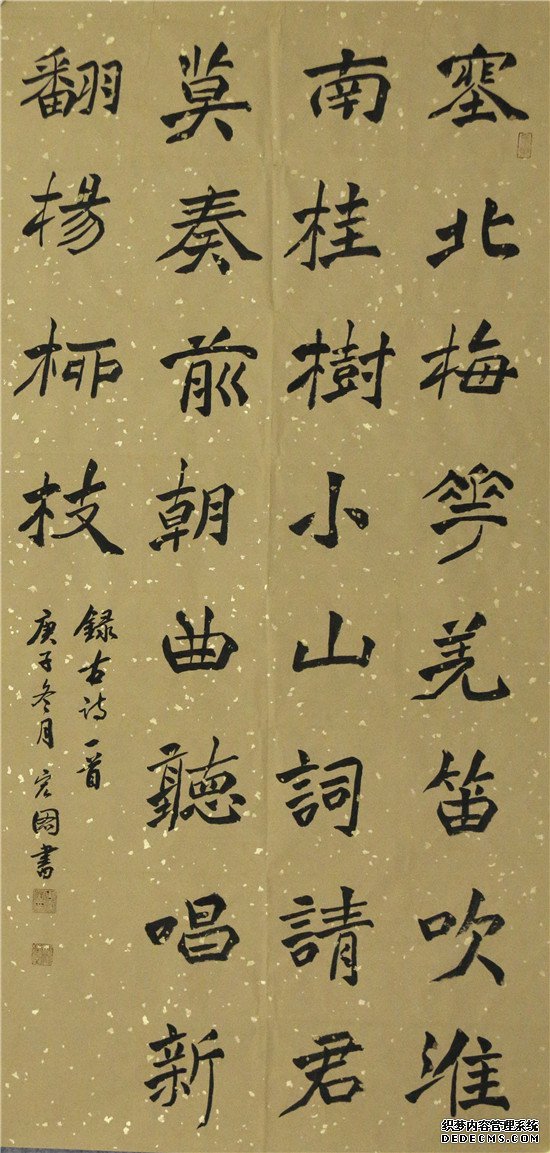 塞北梅花羌笛吹淮
南桂樹小山詞請君
莫奏前朝曲聽唱新
翻楊柳枝
録古詩一首
庚子冬月宏图書
织梦内容管理系统
DEDECMS.COM